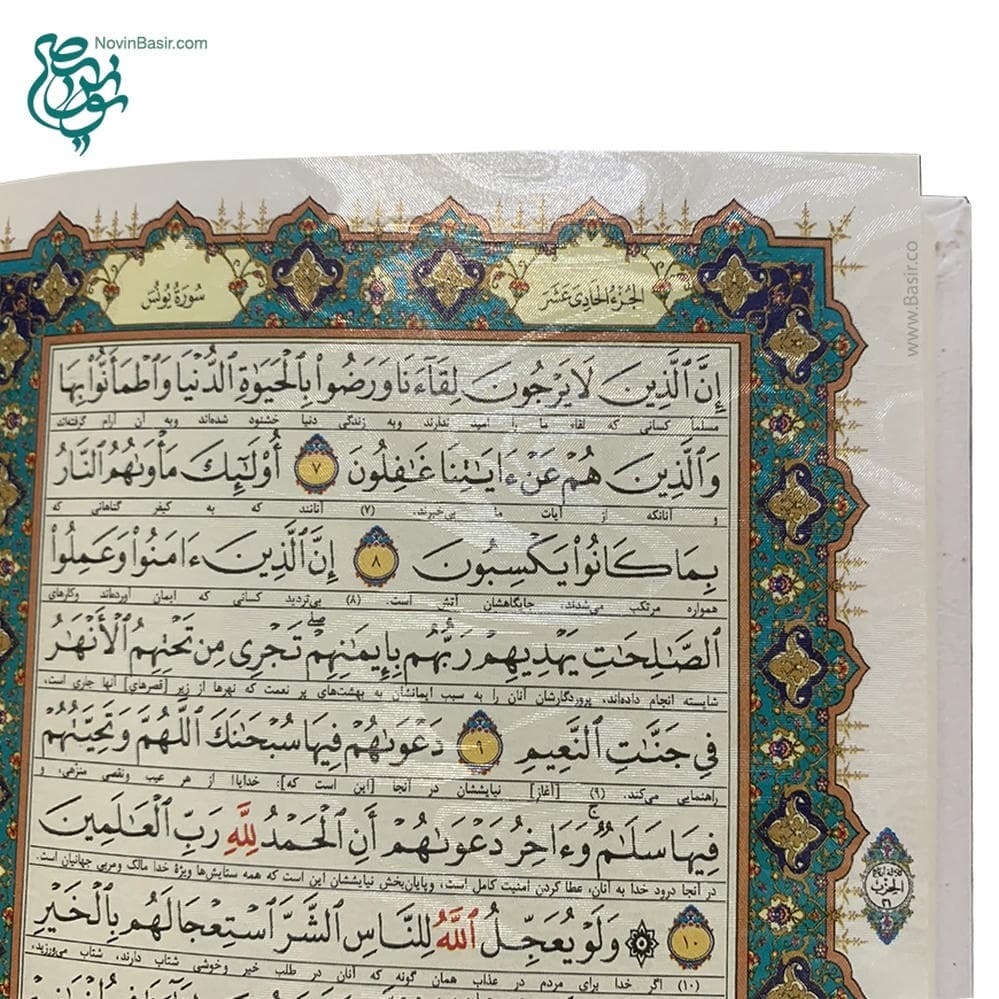 NovinBasir.com
www.Basir.co
الجُزءُ الحَادِی عَشَر
سُورَةُ یُونُس
إِنَّ ٱلَّذِينَ لَا يَرْجُونَ لِقَآءَنَا وَرَضُوا۟ بِٱلْحَيَوٰةِ ٱلدُّنْيَا وَٱطْمَأَنُّوا۟ بِهَا
مسلماً کسانی که لقاء ما را امید ندارند وبه زندگی دنیا خشنود شده‌اند وبه آن آرام گرفته‌اند
وَٱلَّذِينَ هُمْ عَنْ ءَايَٰتِنَا غَٰفِلُونَ ٧ أُو۟لَٰٓئِكَ مَأْوَىٰهُمُ ٱلنَّارُ
و آنانکه از آیات ما بی‌خبرند. (۷) آنانند که به کیفر گناهانی که
بِمَا كَانُوا۟ يَكْسِبُونَ ٨ إِنَّ ٱلَّذِينَ ءَامَنُوا۟ وَعَمِلُوا۟
همواره مرتکب می‌شدند، جایگاهشان آتش است. (۸) بی‌تردید کسانی که ایمان آورده‌اند وکارهای
ٱلصَّٰلِحَٰتِ يَهْدِيهِمْ رَبُّهُم بِإِيمَٰنِهِمْ ۖ تَجْرِى مِن تَحْتِهِمُ ٱلْأَنْهَٰرُ
شایسته انجام داده‌اند، پروردگارشان آنان را به سبب ایمانشان به بهشت‌های پر نعمت که نهرها از زیر [قصرهای] آنها جاری است،
فِى جَنَّٰتِ ٱلنَّعِيمِ ٩ دَعْوَىٰهُمْ فِيهَا سُبْحَٰنَكَ ٱللَّهُمَّ وَتَحِيَّتُهُمْ
راهنمایی می‌کند. (۹) [آغاز] نیایششان در آنجا [این است که]: خدایا! از هر عیب ونقصی منزهی، و
فِيهَا سَلَٰمٌ ۚ وَءَاخِرُ دَعْوَىٰهُمْ أَنِ ٱلْحَمْدُ لِلَّهِ رَبِّ ٱلْعَٰلَمِينَ
در آنجا درود خدا به آنان، عطا کردن امنیت کامل است، وپایان‌بخش نیایششان این است که همه ستایش‌ها ویژهٔ خدا مالک ومربی جهانیان است.
١٠ ۞ وَلَوْ يُعَجِّلُ ٱللَّهُ لِلنَّاسِ ٱلشَّرَّ ٱسْتِعْجَالَهُم بِٱلْخَيْرِ
(۱۰) اگر خدا برای مردم در عذاب همان گونه که آنان در طلب خیر وخوشی شتاب دارند، شتاب می‌ورزید،
الحزب
٢١